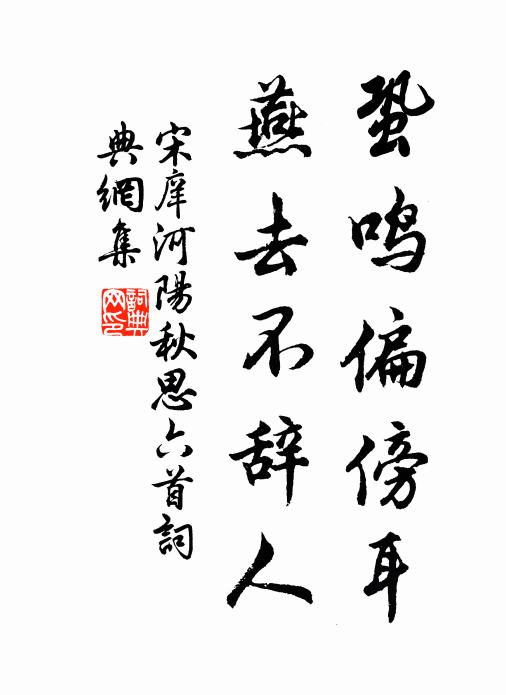 蛩鸣偏傍耳
燕去不辞人
宋庠河陽秋思六首詞
典網集
詞典網印